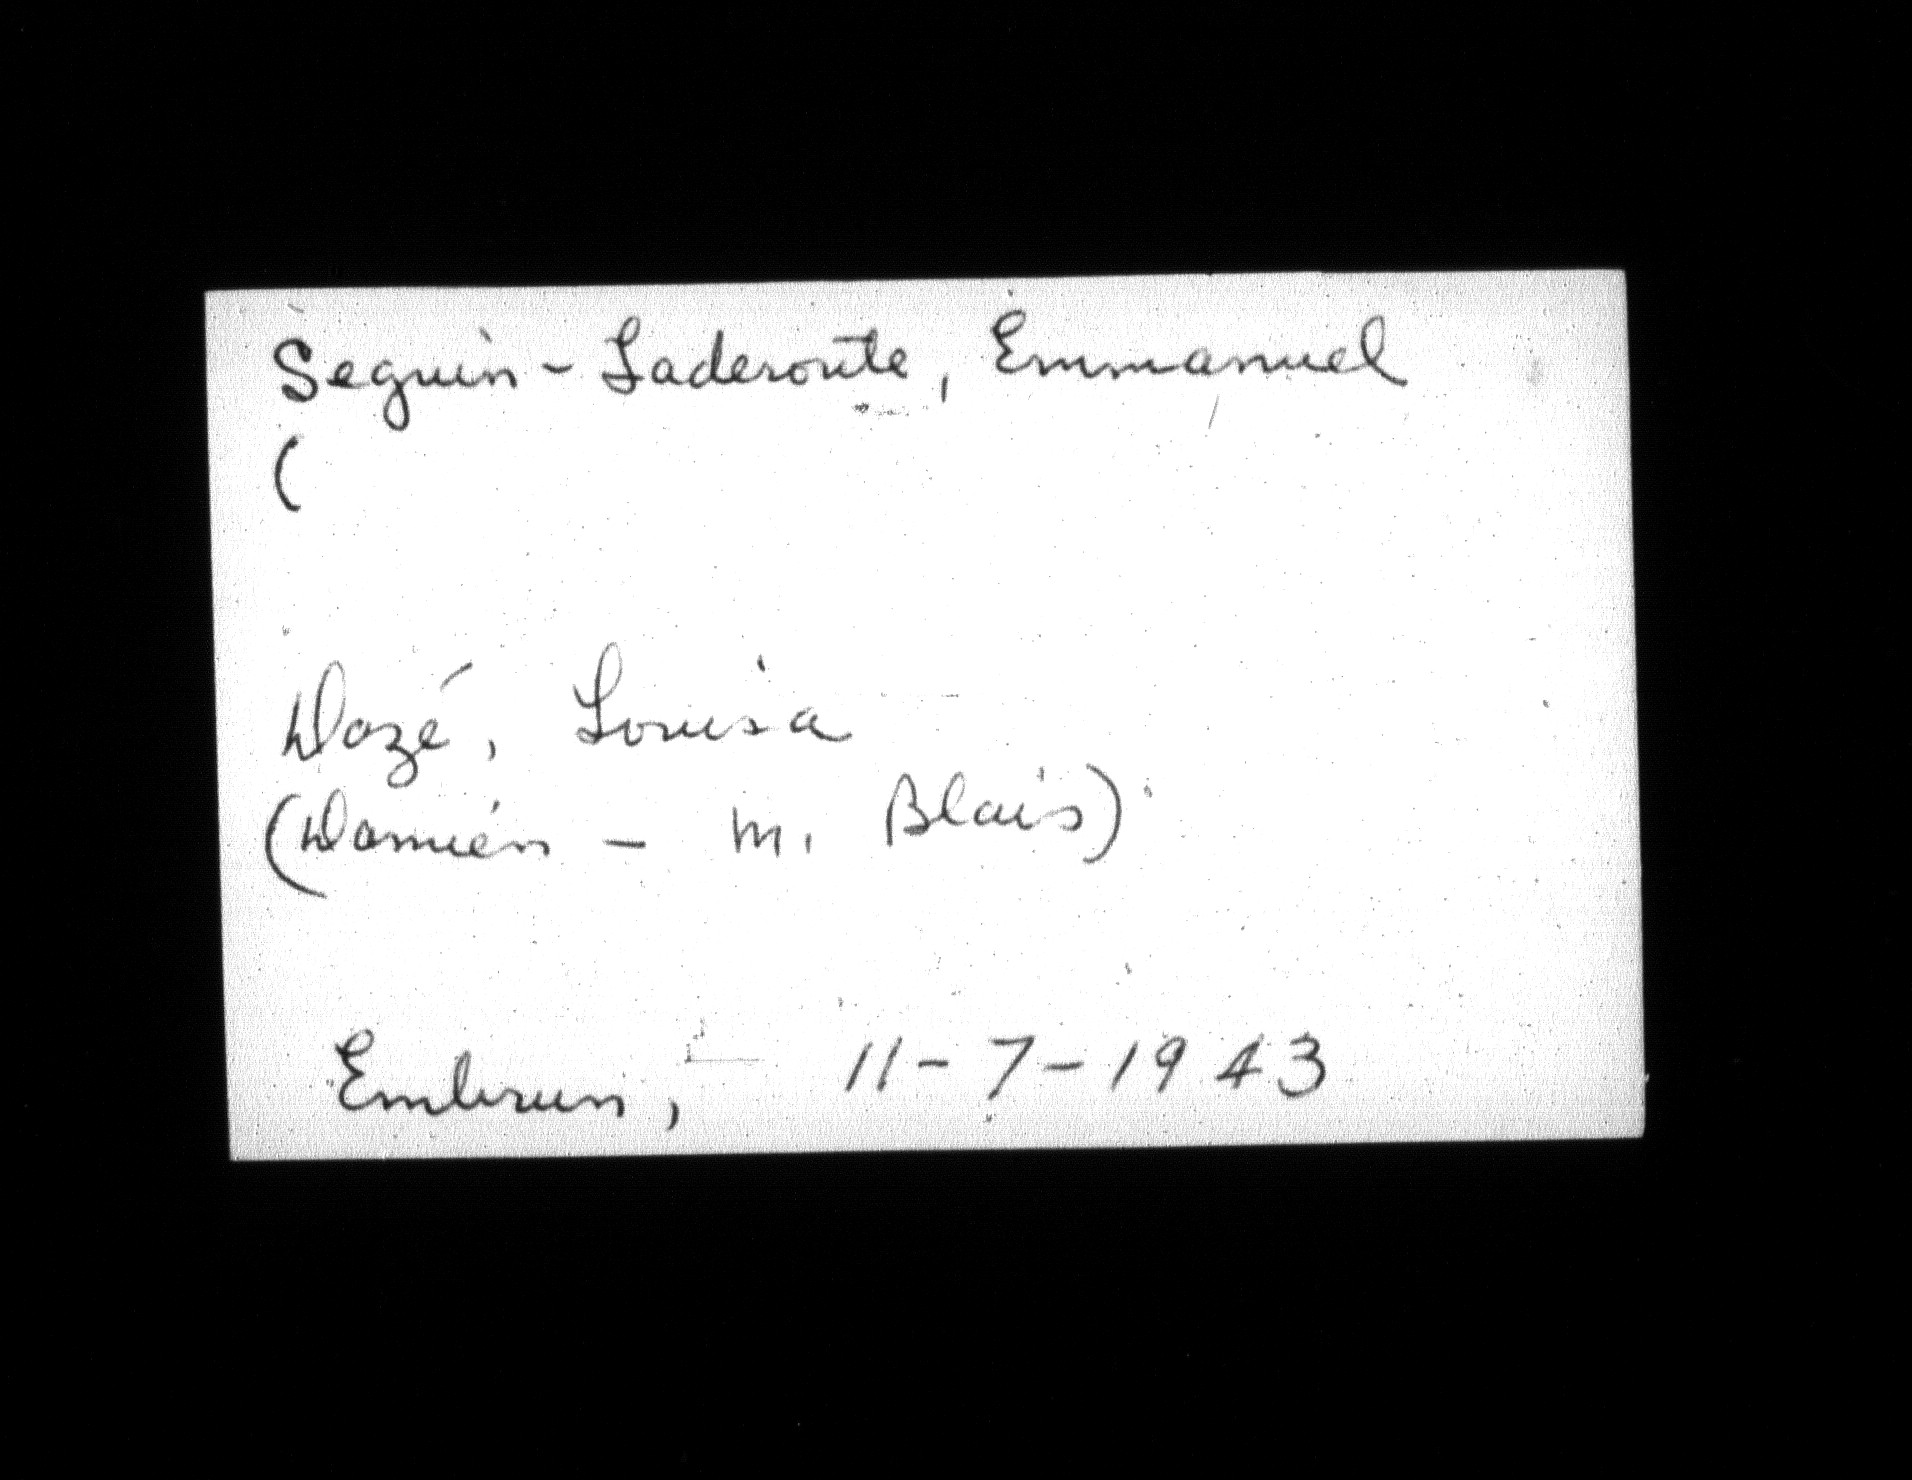 Seguin - Laderoute, Emmanuel
(
Dazé, Louisa
(Damien - M. Blais)
Embrun, 11-7-1943